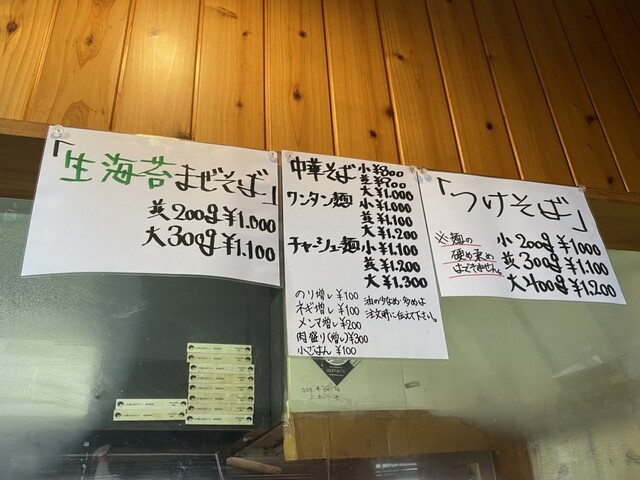 「生海苔まぜそば」
並200g ¥1.000
大300g ¥1.100
中華そば 小¥800
並¥900
大¥1.000
ワンタン麺 小¥1.000
並¥1.100
大¥1.200
チャーシュー麺 小¥1.100
並¥1.200
大¥1.300
のり増し ¥100
ネギ増し ¥100
メンマ増し ¥200
肉盛り(増し) ¥300
小ごはん ¥100
油の少なめ・多めは
注文時に伝えて下さい。
「つけそば」
小 200g ¥1000
並 300g ¥1.100
大 400g ¥1.200
※麺の
硬め柔め
はできません。